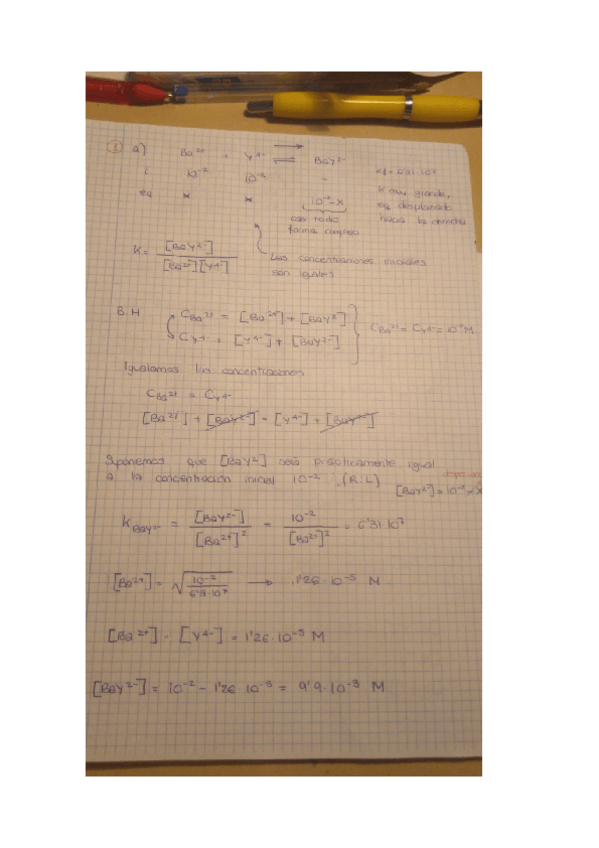 1 a) Ba²⁺ + Y⁴⁻ ⇌ BaY²⁻ Kf = 6'31·10⁷
i 10⁻² 10⁻² - K muy grande,
eq x x 10⁻²-x eq desplazado
hacia la derecha
casi todo
forma complejo
Las concentraciones iniciales
son iguales
K = [BaY²⁻] / [Ba²⁺][Y⁴⁻]
B.M C Ba²⁺ = [Ba²⁺] + [BaY²⁻]
C Y⁴⁻ = [Y⁴⁻] + [BaY²⁻]
C Ba²⁺ = C Y⁴⁻ = 10⁻² M
Igualamos las concentraciones
C Ba²⁺ = C Y⁴⁻
[Ba²⁺] + [BaY²⁻] = [Y⁴⁻] + [BaY²⁻]
Suponemos que [BaY²⁻] será prácticamente igual
a la concentración inicial 10⁻² (R.L)
[BaY²⁻] = 10⁻² - x
K BaY²⁻ = [BaY²⁻] / [Ba²⁺]² = 10⁻² / [Ba²⁺]² = 6'31·10⁷
[Ba²⁺] = √(10⁻² / 6'31·10⁷) → 1'26·10⁻⁵ M
[Ba²⁺] = [Y⁴⁻] = 1'26·10⁻⁵ M
[BaY²⁻] = 10⁻² - 1'26·10⁻⁵ = 9'9·10⁻³ M